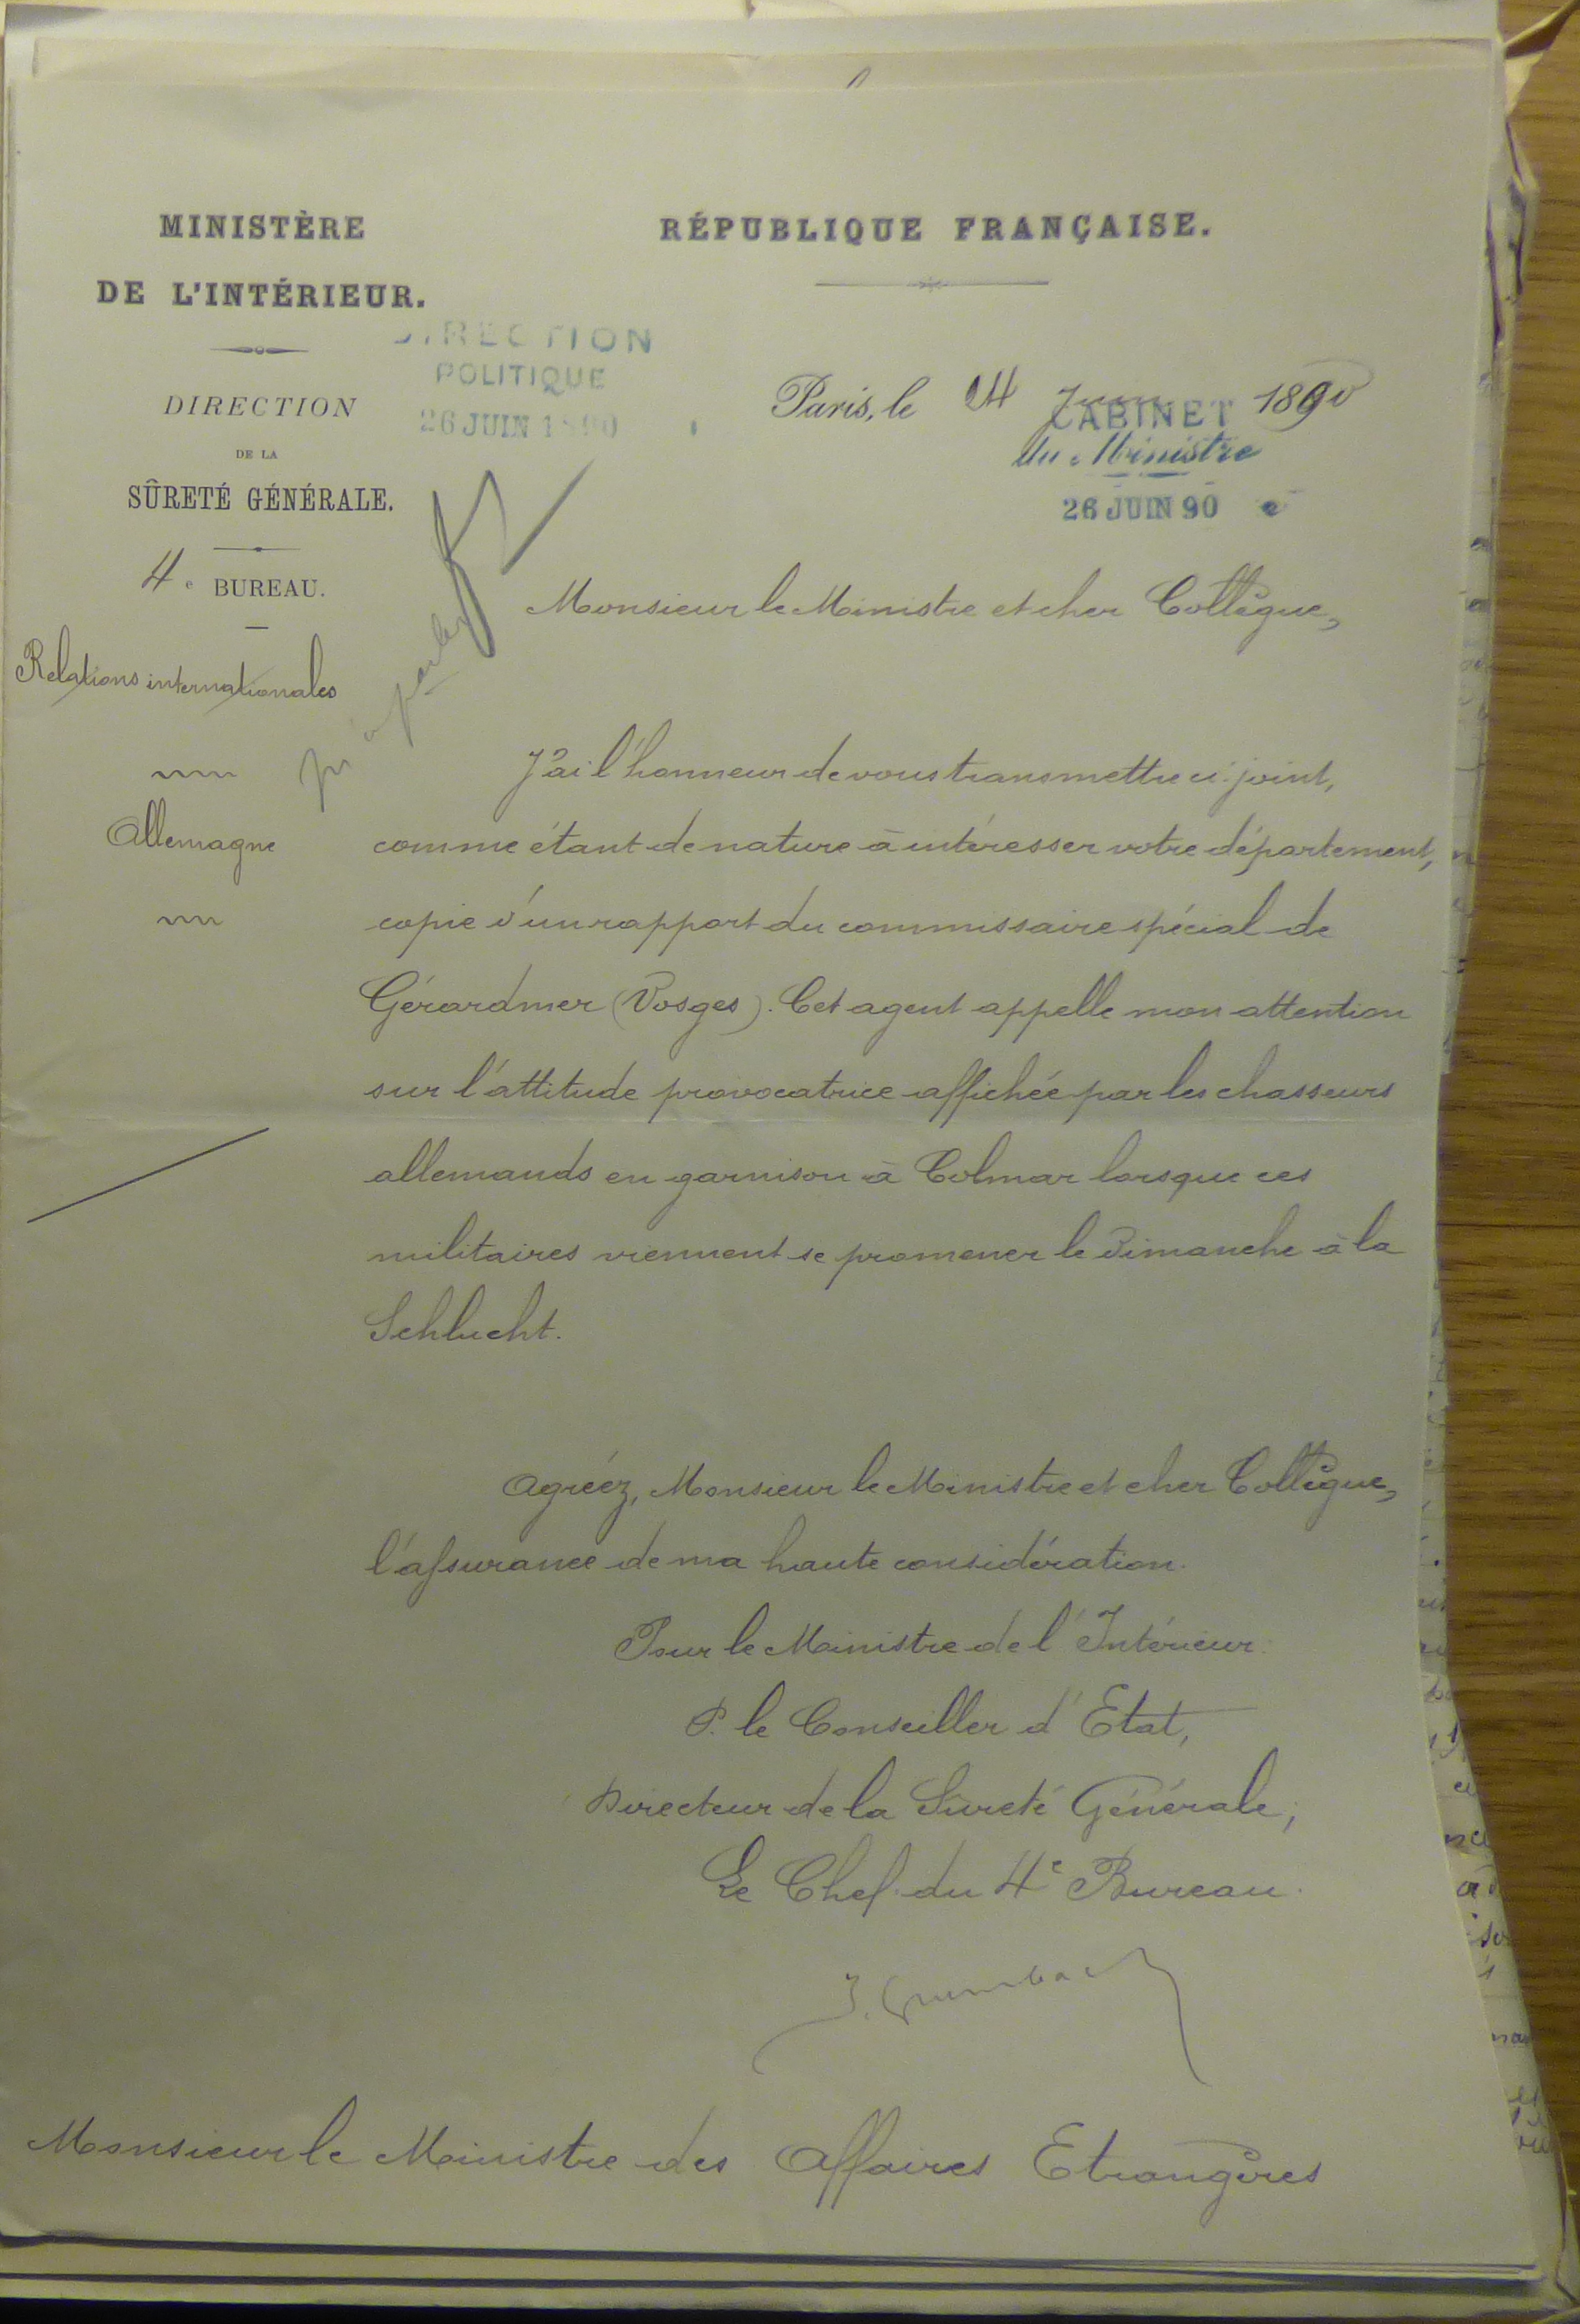 MINISTÈRE
DE L'INTÉRIEUR.
DIRECTION
DE LA
SÛRETÉ GÉNÉRALE.
4e BUREAU.
Relations internationales
Allemagne
RÉPUBLIQUE FRANÇAISE.
DIRECTION
POLITIQUE
26 JUIN 1890
Paris, le 24 Juin 1890
CABINET
du Ministre
26 JUIN 90
Monsieur le Ministre et cher Collègue,
J'ai l'honneur de vous transmettre ci-joint,
comme étant de nature à intéresser votre département,
copie d'un rapport du commissaire spécial de
Gérardmer (Vosges). Cet agent appelle mon attention
sur l'attitude provocatrice affichée par les chasseurs
allemands en garnison à Colmar lorsque ces
militaires viennent se promener le Dimanche à la
Schlucht.
Agréez, Monsieur le Ministre et cher Collègue,
l'assurance de ma haute considération.
Pour le Ministre de l'Intérieur.
P. le Conseiller d'Etat,
Directeur de la Sûreté Générale,
Le Chef du 4e Bureau.
J. Grumbach
Monsieur le Ministre des Affaires Etrangères